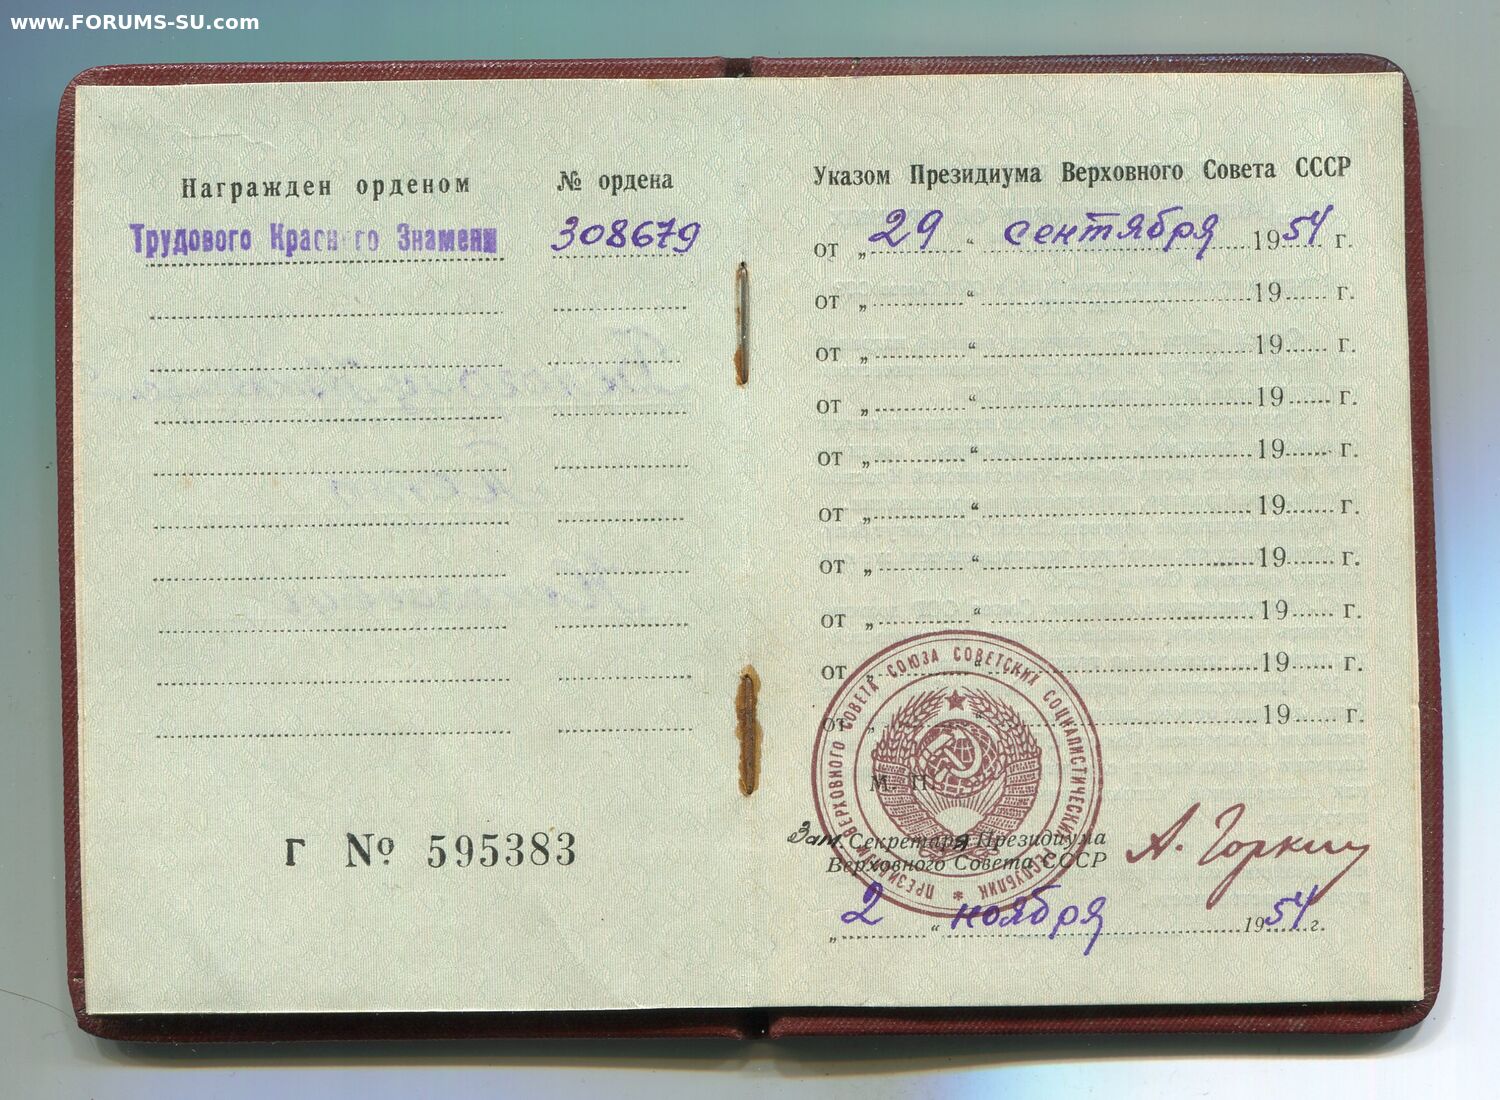 www.FORUMS-SU.com
Награжден орденом
№ ордена
Трудового Красного Знамени
308679
Г № 595383
Указом Президиума Верховного Совета СССР
от „ 29 “ сентября 1954 г.
от „ “ 19 г.
от „ “ 19 г.
от „ “ 19 г.
от „ “ 19 г.
от „ “ 19 г.
от „ “ 19 г.
от „ “ 19 г.
от „ “ 19 г.
от „ “ 19 г.
М. П.
ПРЕЗИДИУМ ВЕРХОВНОГО СОВЕТА СОЮЗА СОВЕТСКИХ СОЦИАЛИСТИЧЕСКИХ РЕСПУБЛИК
Зам. Секретаря Президиума
Верховного Совета СССР
А. Горкин
„ 2 “ ноября 1954 г.